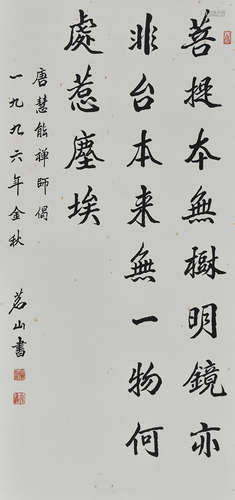 菩提本無樹明鏡亦
非台本来無一物何
處惹塵埃
唐慧能禪師偈
一九九六年金秋
茗山書